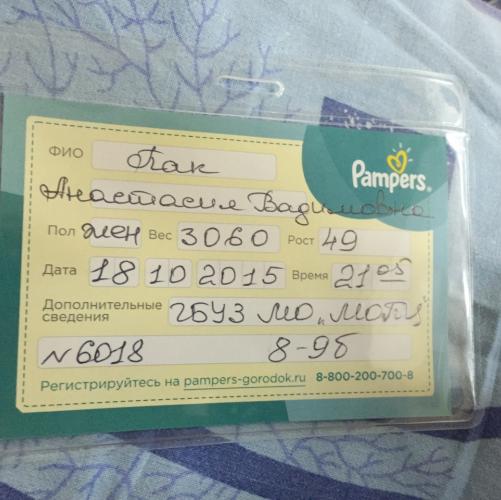 ФИО Пак
Pampers
Анастасия Вадимовна
Пол жен Вес 3060 Рост 49
Дата 18 10 2015 Время 21 05
Дополнительные сведения ГБУЗ МО „МОПЦ"
N 6018 8-9б
Регистрируйтесь на pampers-gorodok.ru 8-800-200-700-8